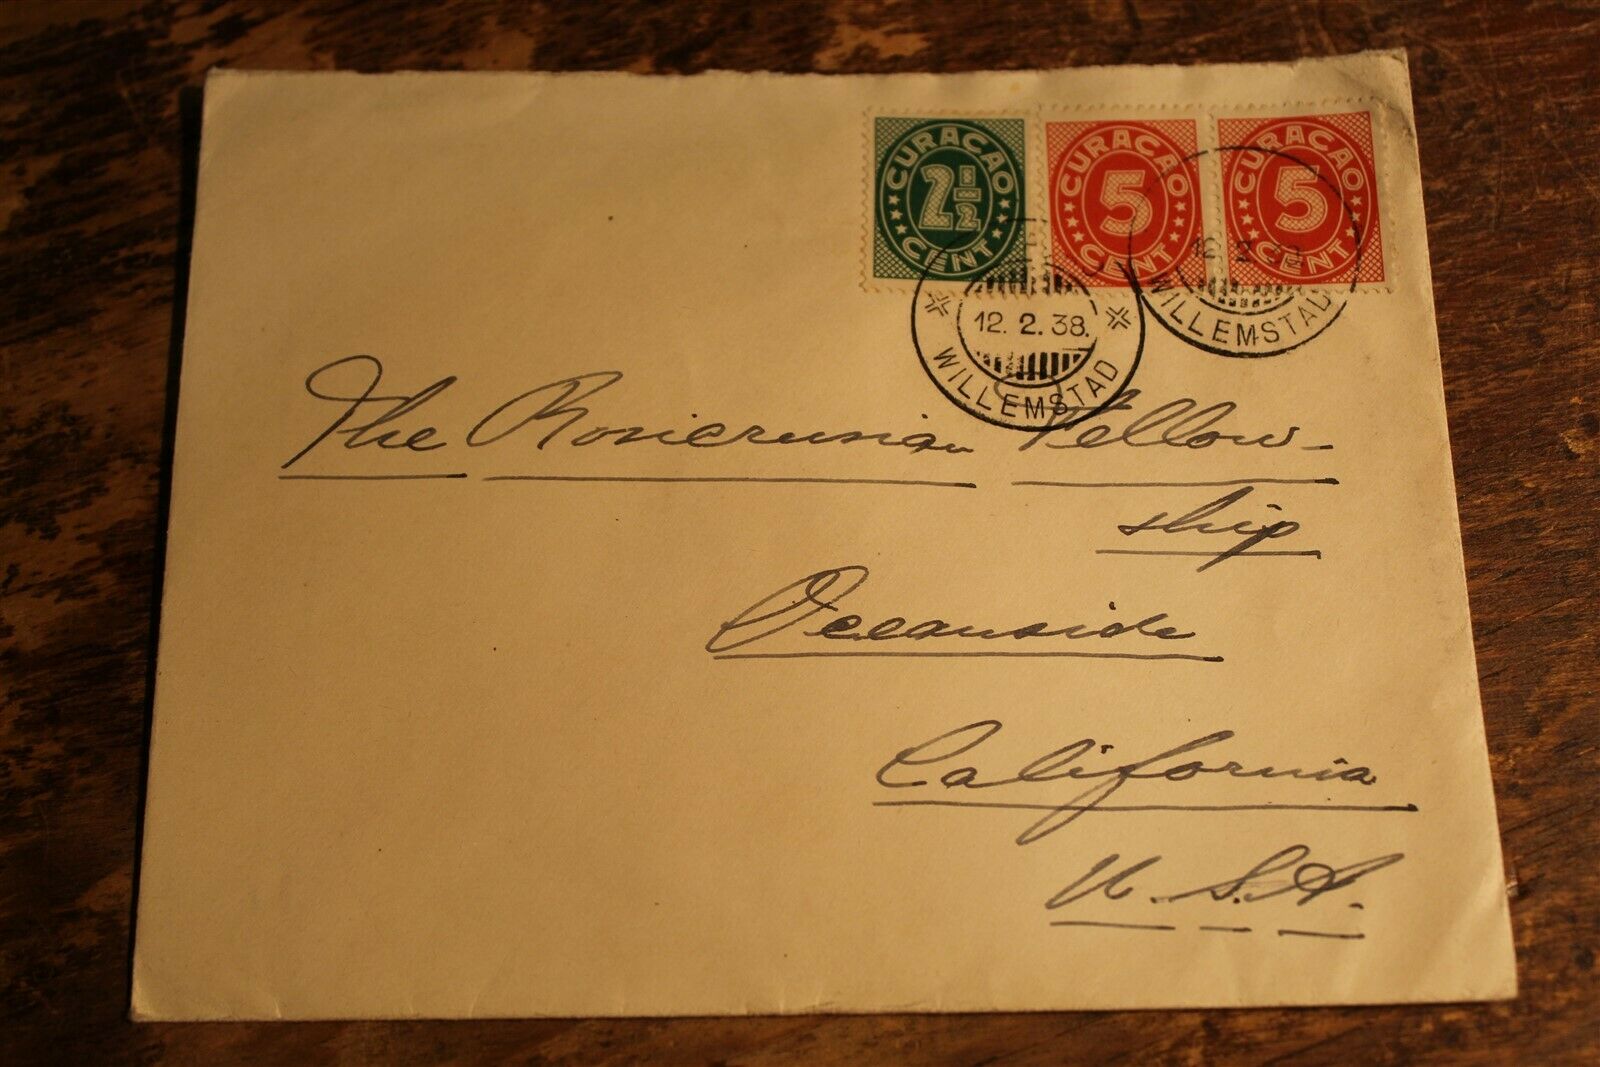 CURAÇAO 2½ CENT
CURAÇAO 5 CENT
CURAÇAO 5 CENT
12. 2. 38.
WILLEMSTAD
12. 2. 38.
WILLEMSTAD
The Rosicrusian Fellow-
ship
Oceanside
California
U.S.A.